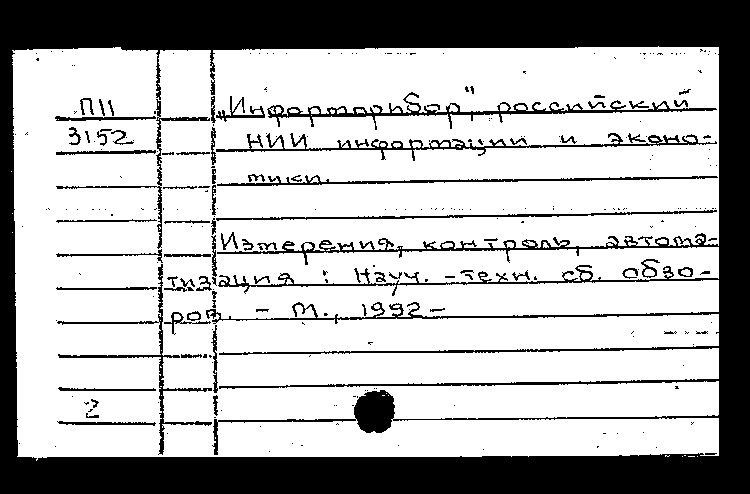 П11
3152
„Информприбор", российский
НИИ информации и эконо-
мики.
Измерения, контроль, автома-
тизация : Науч. - техн. сб. обзо-
ров. - М., 1992 -
2